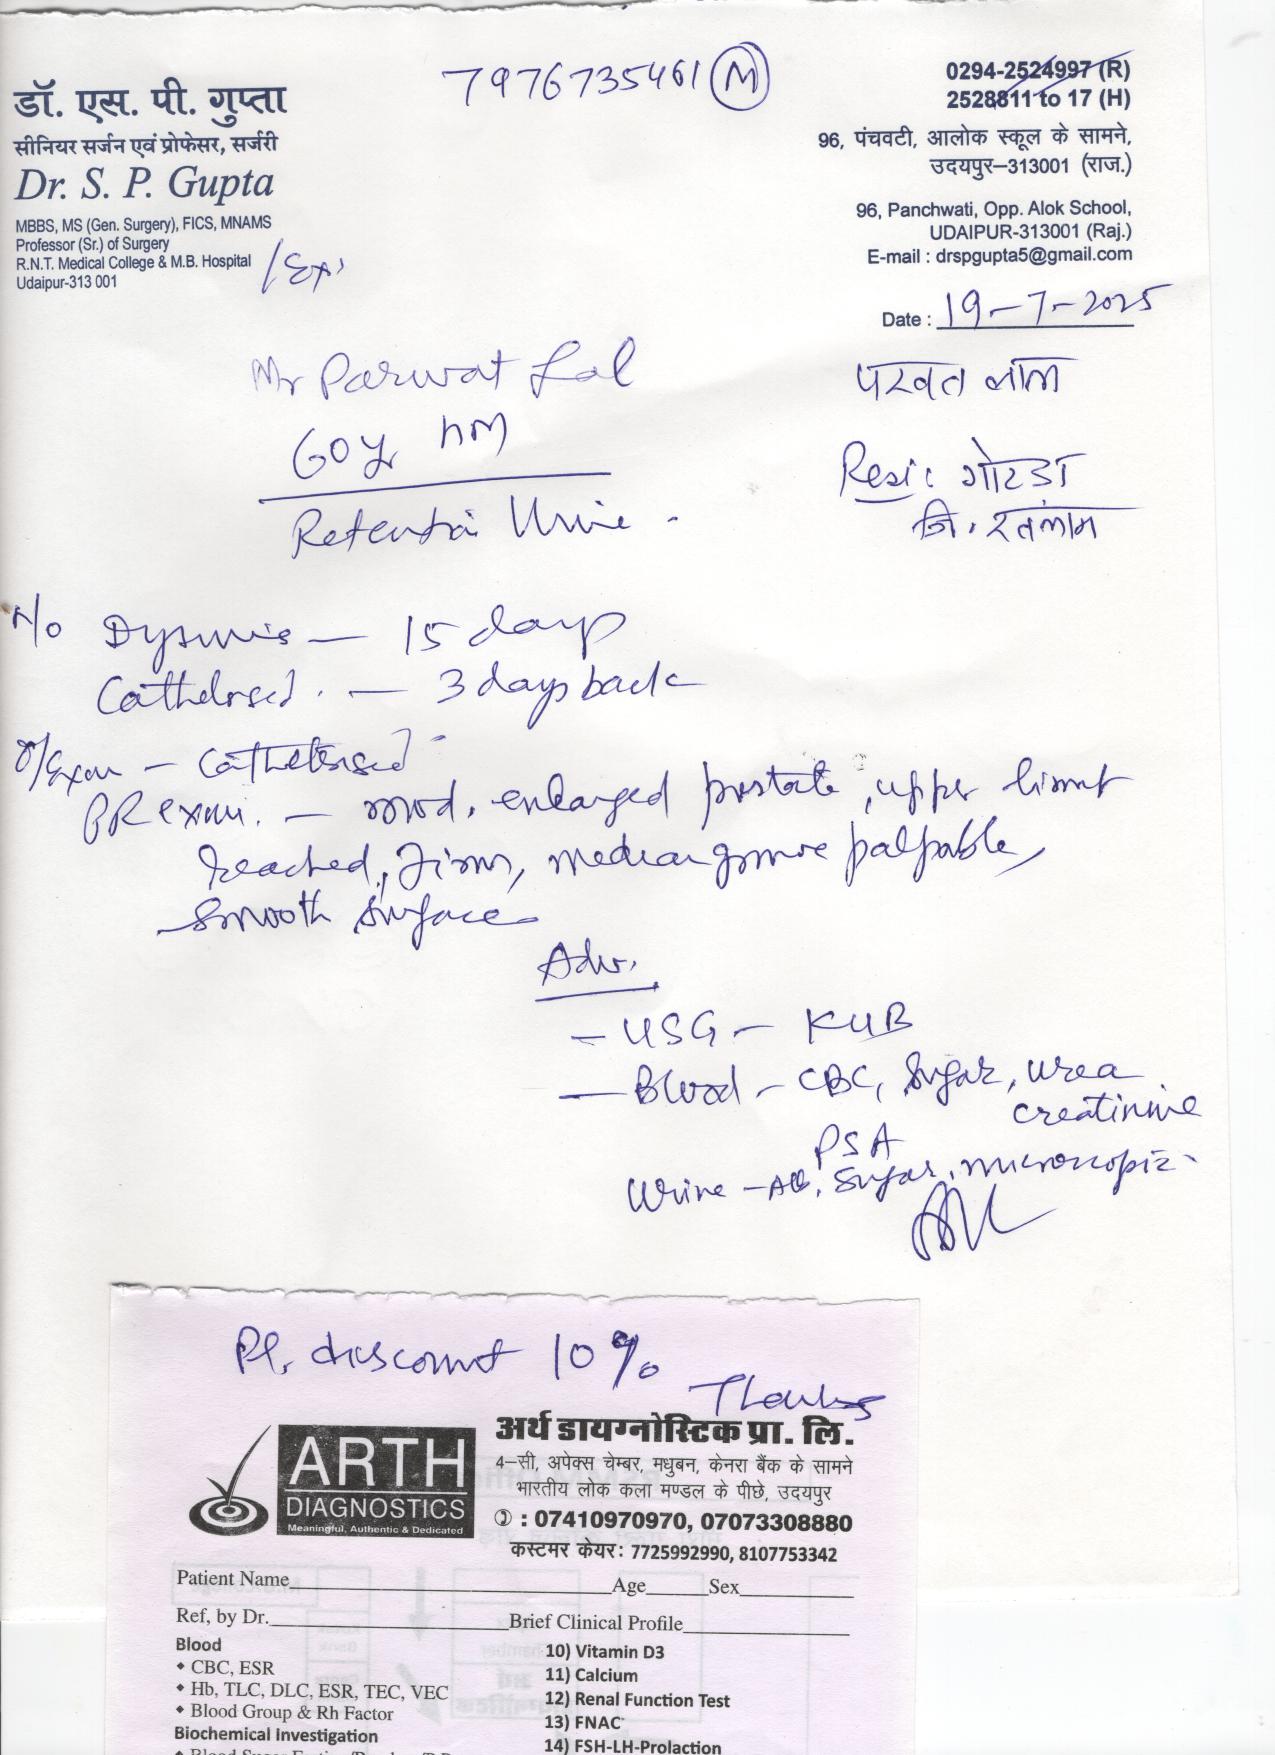 7976735461 (M)
डॉ. एस. पी. गुप्ता
सीनियर सर्जन एवं प्रोफेसर, सर्जरी
Dr. S. P. Gupta
MBBS, MS (Gen. Surgery), FICS, MNAMS
Professor (Sr.) of Surgery
R.N.T. Medical College & M.B. Hospital
Udaipur-313 001
/Ex.
0294-2524997 (R)
2528811 to 17 (H)
96, पंचवटी, आलोक स्कूल के सामने,
उदयपुर–313001 (राज.)
96, Panchwati, Opp. Alok School,
UDAIPUR-313001 (Raj.)
E-mail : drspgupta5@gmail.com
Date : 19-7-2025
Mr Parwat Lal
60 yr HM
Retention Urine
परवत लाल
Resi: गोटडा
जि. रतलाम
H/o Dysuria — 15 days
Catheterised. — 3 days back
O/Exam — Catheterised
PR exam. — mod. enlarged prostate, upper limit
reached, Firm, median groove palpable,
smooth surface
Adv.
— USG — KUB
— Blood — CBC, Sugar, urea
creatinine
PSA
Urine — Alb, Sugar, microscopic
Pl. discount 10%
Thanks
ARTH
DIAGNOSTICS
Meaningful, Authentic & Dedicated
अर्थ डायग्नोस्टिक प्रा. लि.
4–सी, अपेक्स चेम्बर, मधुबन, केनरा बैंक के सामने
भारतीय लोक कला मण्डल के पीछे, उदयपुर
: 07410970970, 07073308880
कस्टमर केयर: 7725992990, 8107753342
Patient Name Age Sex
Ref, by Dr. Brief Clinical Profile
Blood
• CBC, ESR
• Hb, TLC, DLC, ESR, TEC, VEC
• Blood Group & Rh Factor
Biochemical Investigation
10) Vitamin D3
11) Calcium
12) Renal Function Test
13) FNAC
14) FSH-LH-Prolaction